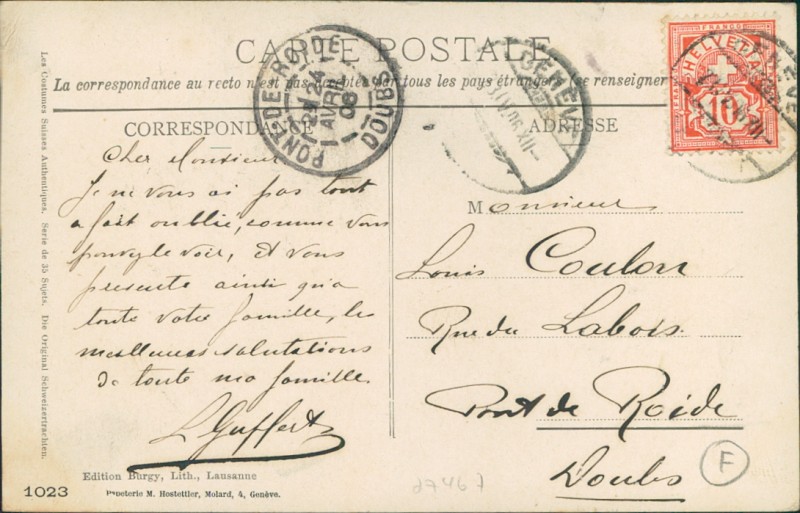 CARTE POSTALE
La correspondance au recto n'est pas acceptée par tous les pays étrangers (se renseigner
CORRESPONDANCE
ADRESSE
Cher Monsieur
Je ne vous ai pas tout
a fait oublié, comme vous
pouvez le voir, et vous
présente ainsi qu'a
toute votre famille, les
meilleures salutations
de toute ma famille
Monsieur
Louis Coulon
Rue du Labois.
Pont de Roide
Doubs
F
27467
Edition Burgy, Lith., Lausanne
1023
Papeterie M. Hostettler, Molard, 4, Genève.
Les Costumes Suisses Authentiques. Serie de 35 Sujets. Die Original Schweizertrachten.
PONT-DE-ROIDE
24
AVRIL
06
DOUBS
FRANCO
HELVETIA
10